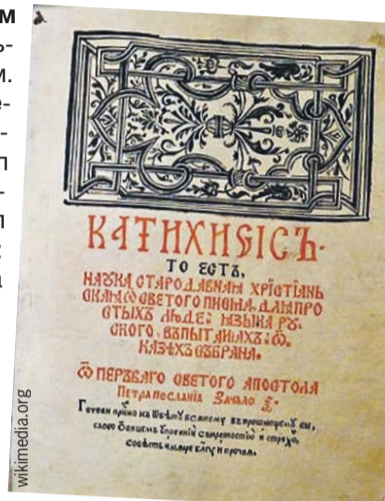 м
ь-
м.
е-
-
п
-
л
:
а
КАТИХИСІСЪ·
ТО ЕСТЪ,
НАУКА СТАРОДАВНАѦ ХРІСТІАНЬ
СКАѦ Ѿ СВЕТОГО ПИСМА, ДЛѦ ПРО
СТЫХЪ ЛЮДЕЙ ѦЗЫКА РУ
СКОГО, ВЪПЫТАНІАХЪ Ѿ
КАЗѢХЪ СЪБРАНА.
Ѿ ПЕРЪВАГО СВЕТОГО АПОСТОЛА
Петра посланіа Зачало
Готови присно къ ѿвѣту всѧкому въпрошающему вы,
слово ѡ вашемъ упованіи съкротостію и страхо,
совѣсть имѧще благу и прочаѧ.
wikimedia.org